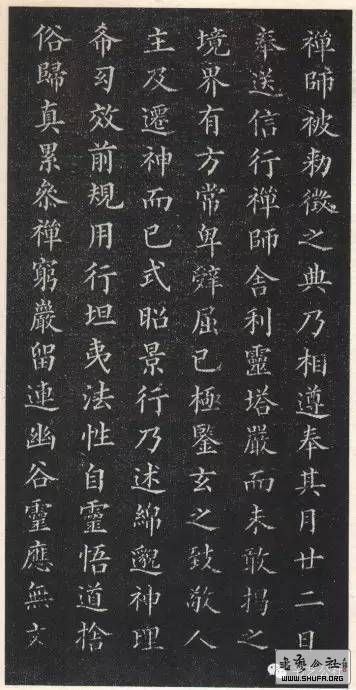 禪師被勑徵之典乃相遵奉其月廿二日
奉送信行禪師舍利靈塔嚴而未敢揭之
境界有方常卑辭屈已極鑒玄之致敬人
主及遷神而已式昭景行乃述綿邈神理
希效前規用行坦夷法性自靈悟道捨
俗歸真累參禪窮嚴留連幽谷靈應無文
书艺公社
WWW.SHUFA.ORG